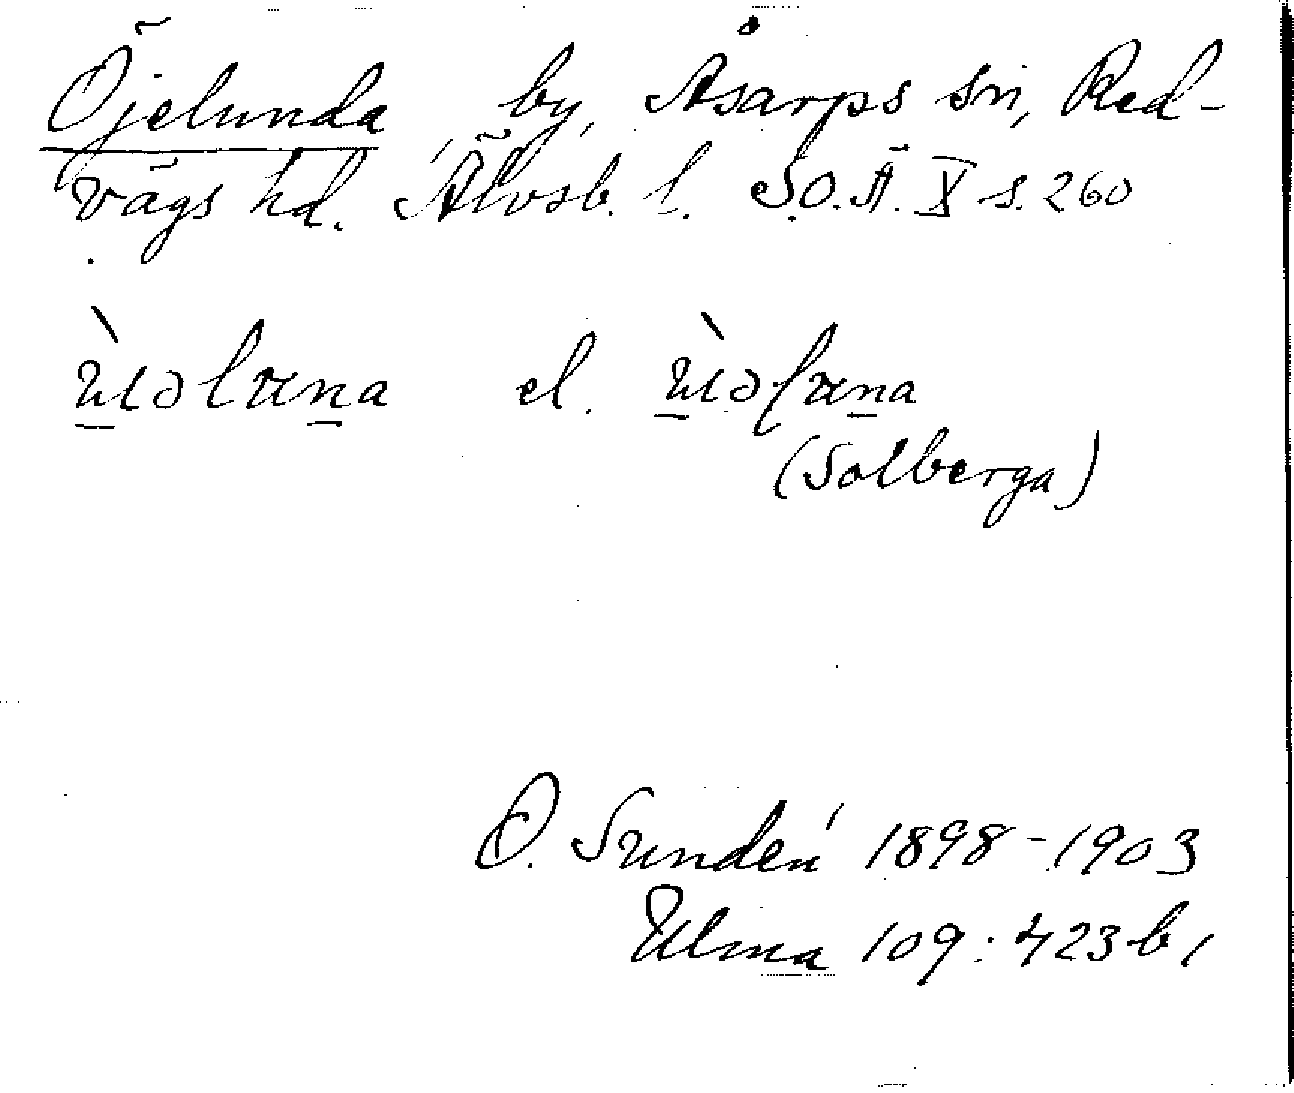 Öjelunda, by, Åsarps sn, Red-
vägs hd. Älvsb. l. S.O.Ä. X s. 260
el.
(Solberga)
O. Sundén 1898-1903
Ulma 109:423 b,